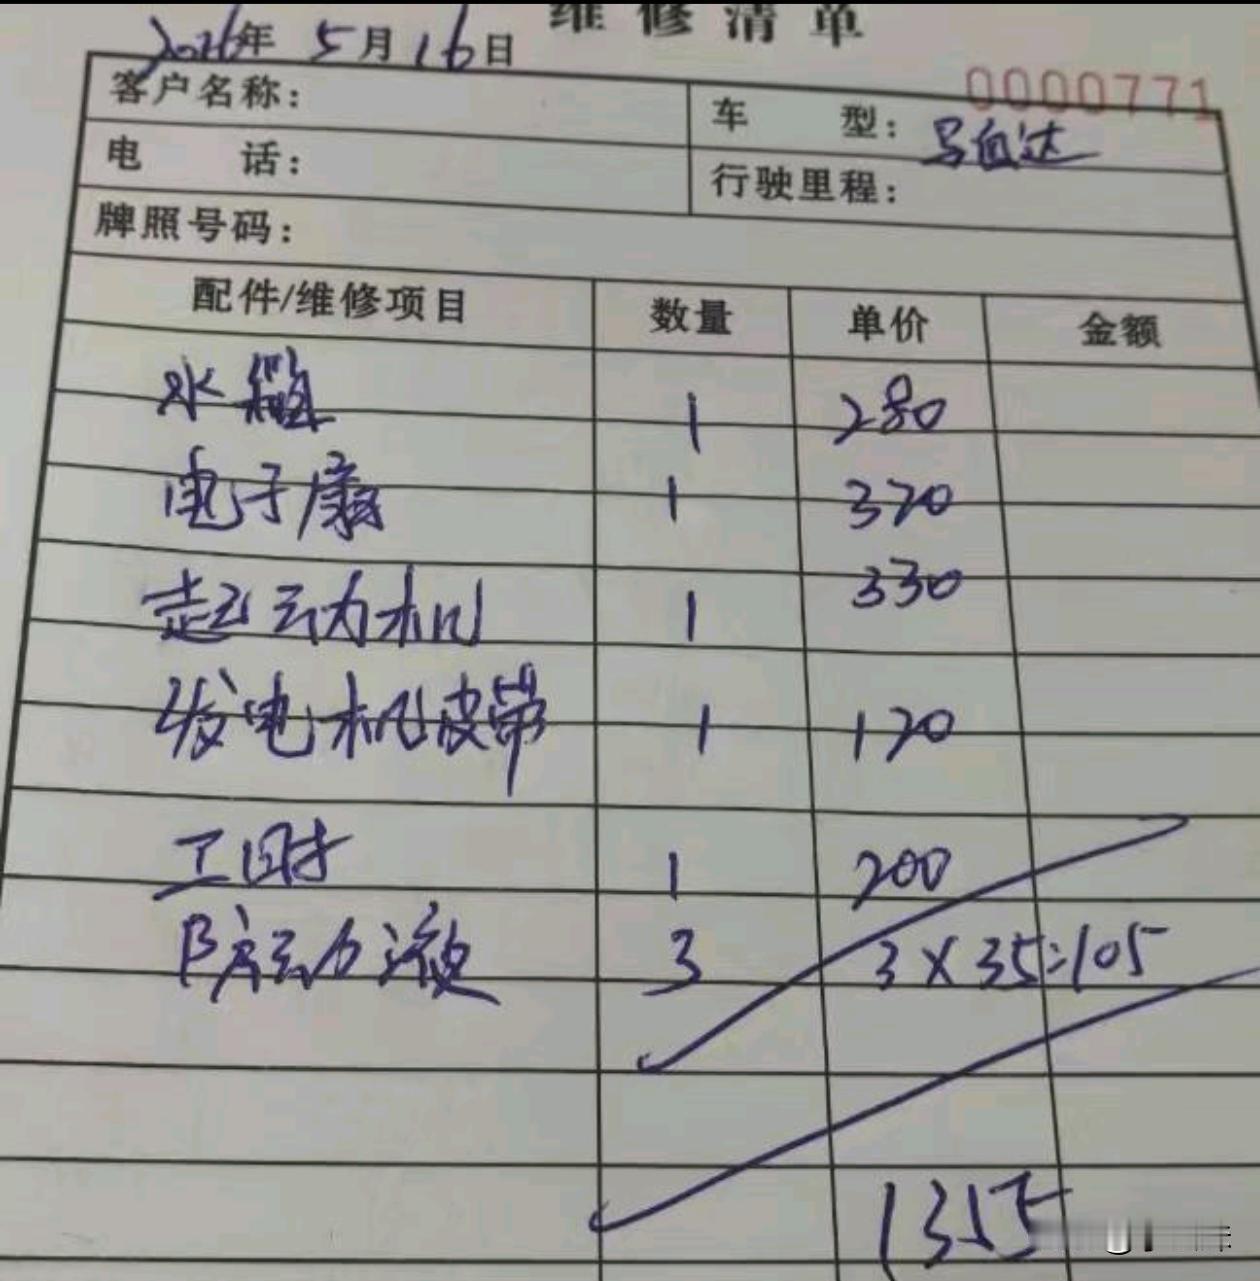 维修清单
2026年 5月16日
0000771
客户名称： 车 型：马自达
电 话： 行驶里程：
牌照号码：
配件/维修项目 数量 单价 金额
水箱 1 280
电子扇 1 320
起动机 1 330
发电机皮带 1 120
工时 1 200
防动液 3 3×35=105
1355